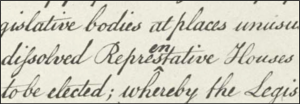 gislative bodies at places unusu
dissolved Representative Houses
to be elected; whereby the Legis